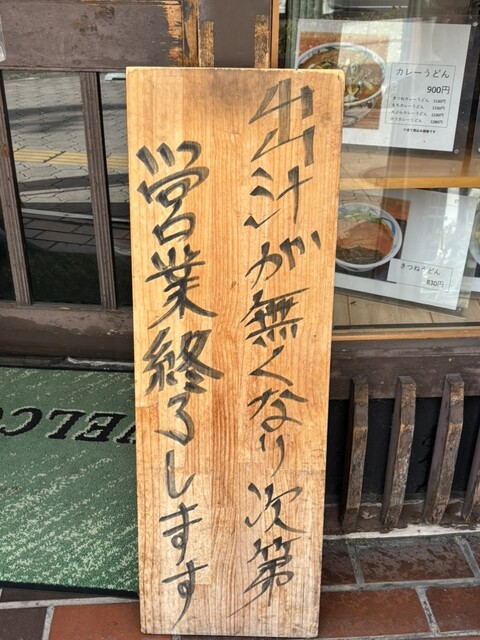 出汁が無くなり次第
営業終了します
カレーうどん
900円
きつねうどん
830円
WELCO